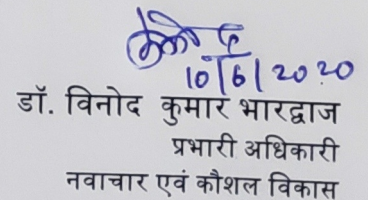 10/6/2020
डॉ. विनोद कुमार भारद्वाज
प्रभारी अधिकारी
नवाचार एवं कौशल विकास